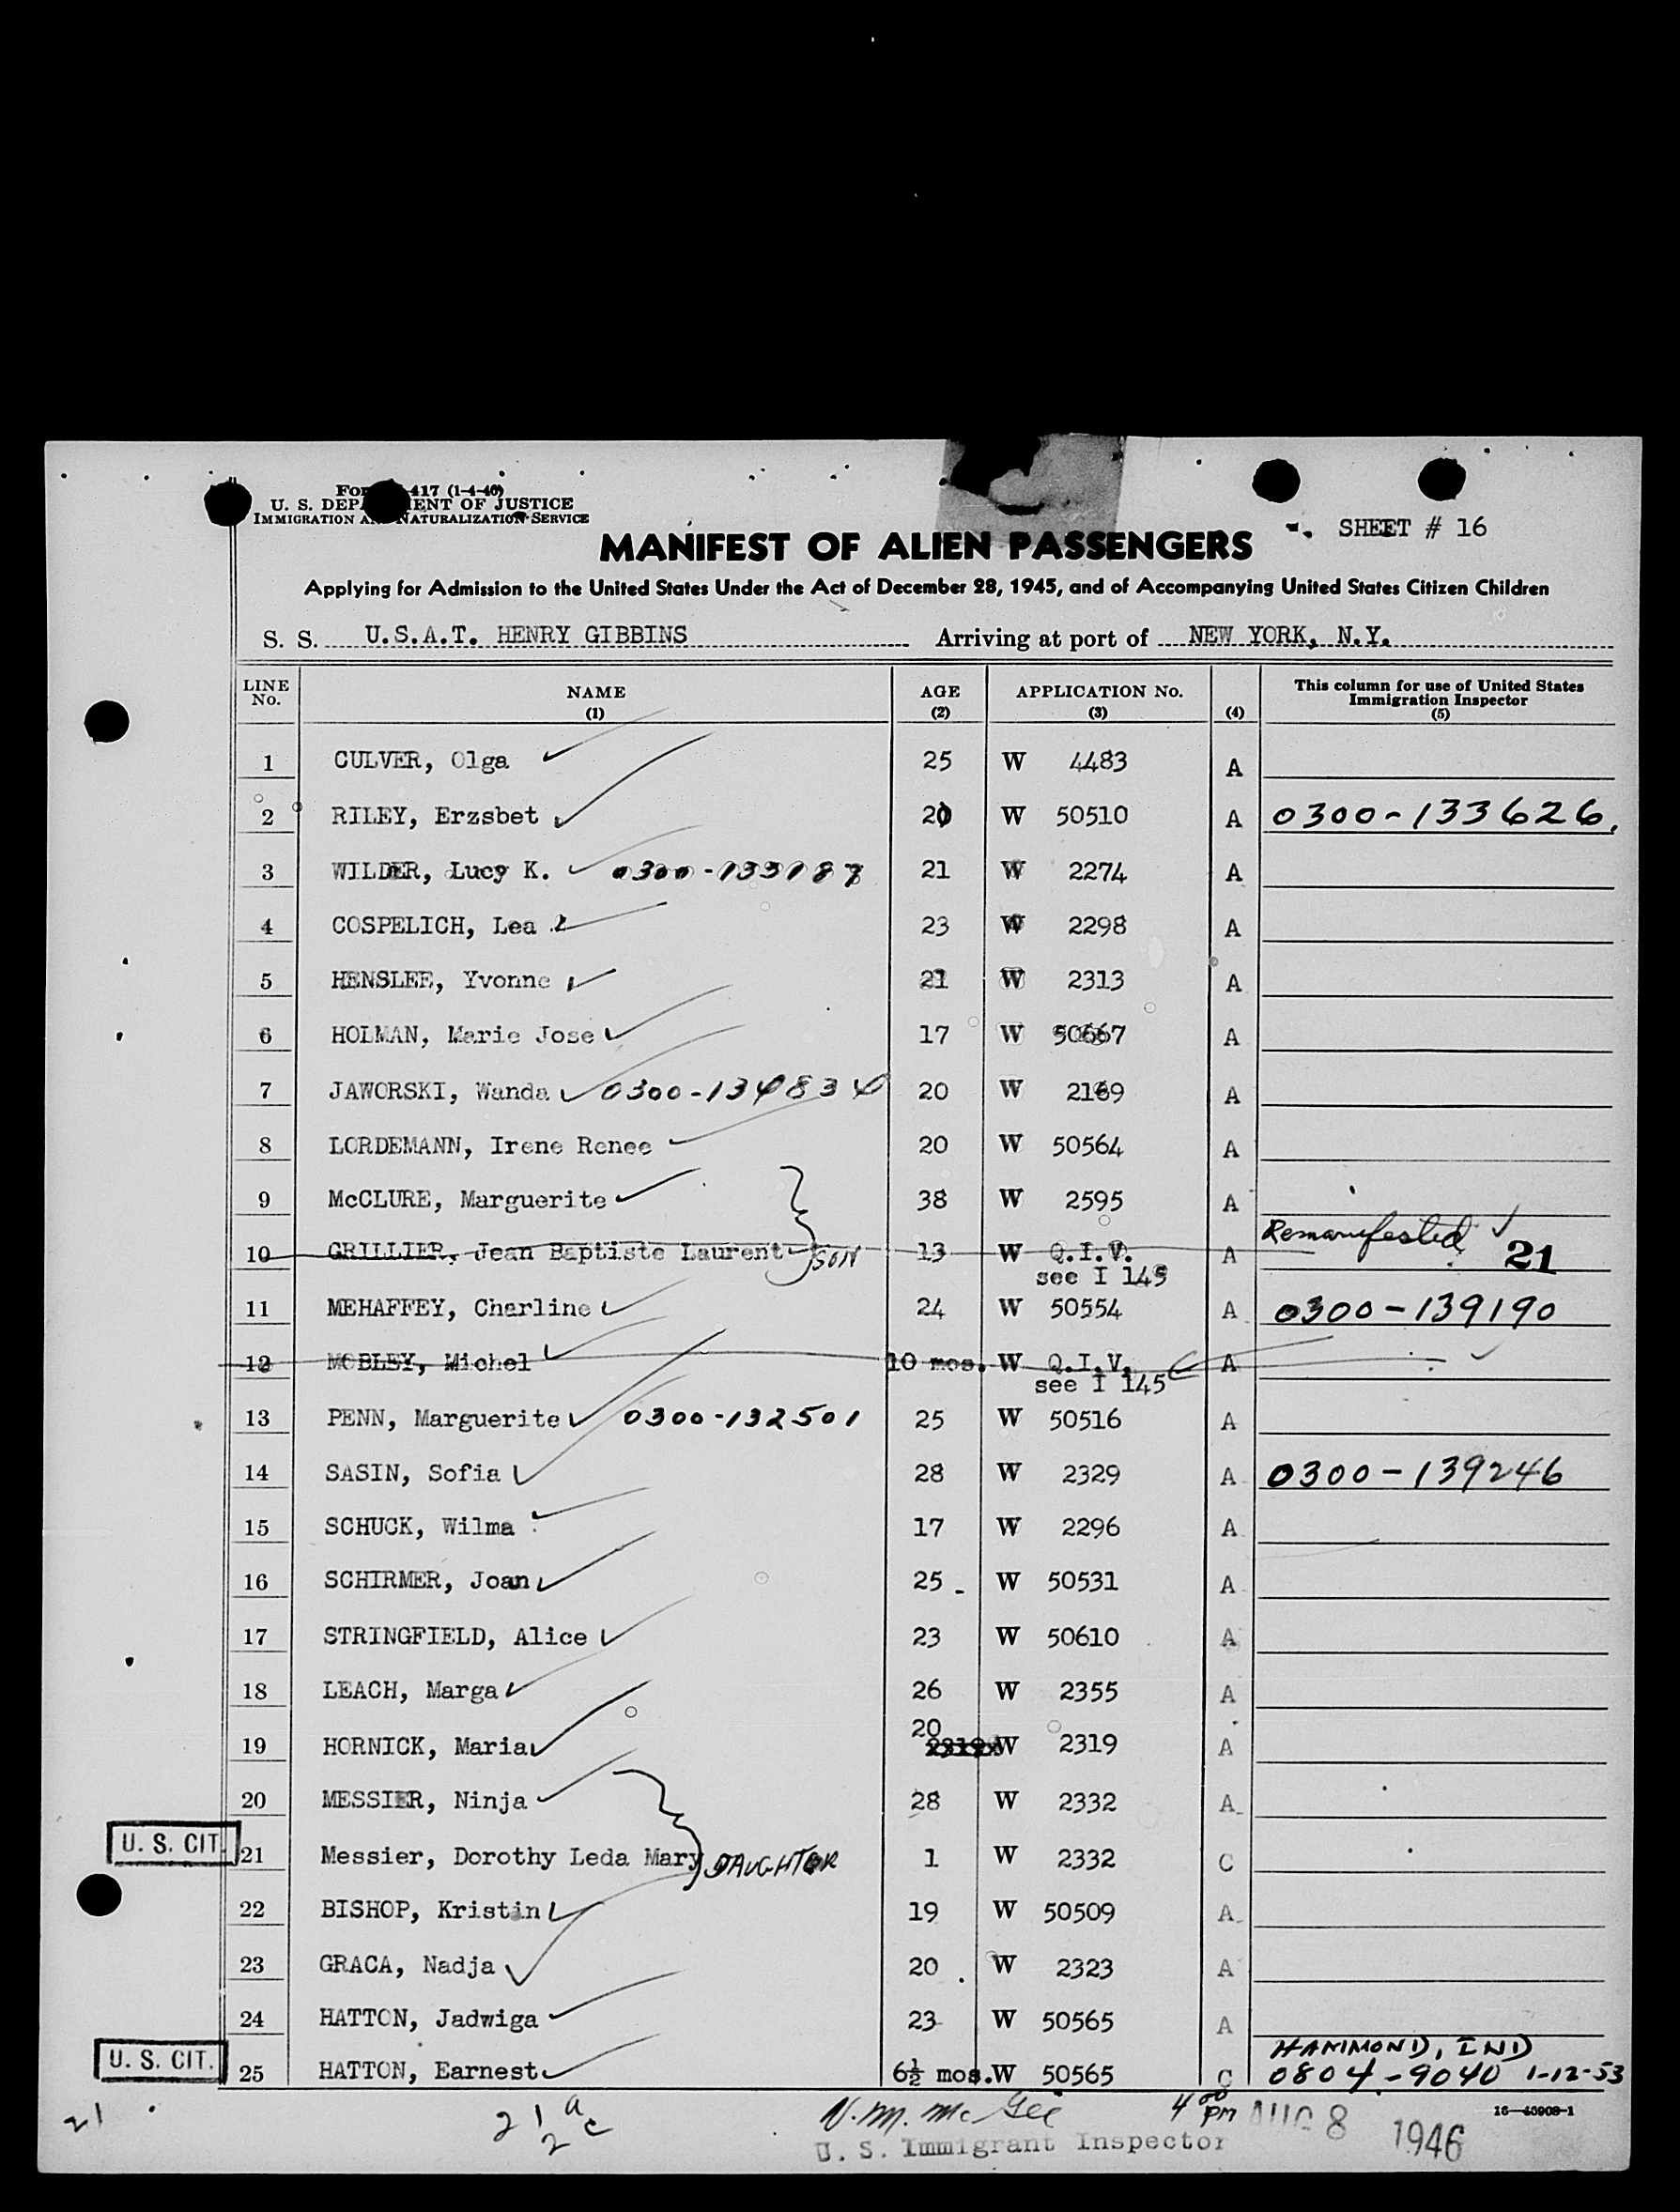 417 (1-4-46)
U. S. DEPA MENT OF JUSTICE
IMMIGRATION AND NATURALIZATION SERVICE
SHEET # 16
MANIFEST OF ALIEN PASSENGERS
Applying for Admission to the United States Under the Act of December 28, 1945, and of Accompanying United States Citizen Children
S. S. U.S.A.T. HENRY GIBBINS Arriving at port of NEW YORK, N.Y.
LINE No. NAME (1) AGE (2) APPLICATION No. (3) (4) This column for use of United States Immigration Inspector (5)
1 CULVER, Olga 25 W 4483 A
2 RILEY, Erzsbet 20 W 50510 A 0300-133626
3 WILDER, Lucy K. 0300-133187 21 W 2274 A
4 COSPELICH, Lea 23 W 2298 A
5 HENSLEE, Yvonne 21 W 2313 A
6 HOLMAN, Marie Jose 17 W 50667 A
7 JAWORSKI, Wanda 0300-134834 20 W 2169 A
8 LORDEMANN, Irene Renee 20 W 50564 A
9 McCLURE, Marguerite 38 W 2595 A
10 GRILLIER, Jean Baptiste Laurent SON 13 W Q.I.V. A Remanifested 21
see I 145
11 MEHAFFEY, Charline 24 W 50554 A 0300-139190
12 MOBLEY, Michel 10 mos. W Q.I.V. A
see I 145
13 PENN, Marguerite 0300-132501 25 W 50516 A
14 SASIN, Sofia 28 W 2329 A 0300-139246
15 SCHUCK, Wilma 17 W 2296 A
16 SCHIRMER, Joan 25 W 50531 A
17 STRINGFIELD, Alice 23 W 50610 A
18 LEACH, Marga 26 W 2355 A
19 HORNICK, Maria 20 W 2319 A
20 MESSIER, Ninja 28 W 2332 A
U. S. CIT. 21 Messier, Dorothy Leda Mary DAUGHTER 1 W 2332 C
22 BISHOP, Kristin 19 W 50509 A
23 GRACA, Nadja 20 W 2323 A
24 HATTON, Jadwiga 23 W 50565 A
HAMMOND, IND
U. S. CIT. 25 HATTON, Earnest 6½ mos. W 50565 C 0804-9040 1-12-53
21 21 a 2 c N. M. McGee 4 00 PM AUG 8 1946
16-40908-1
U. S. Immigrant Inspector